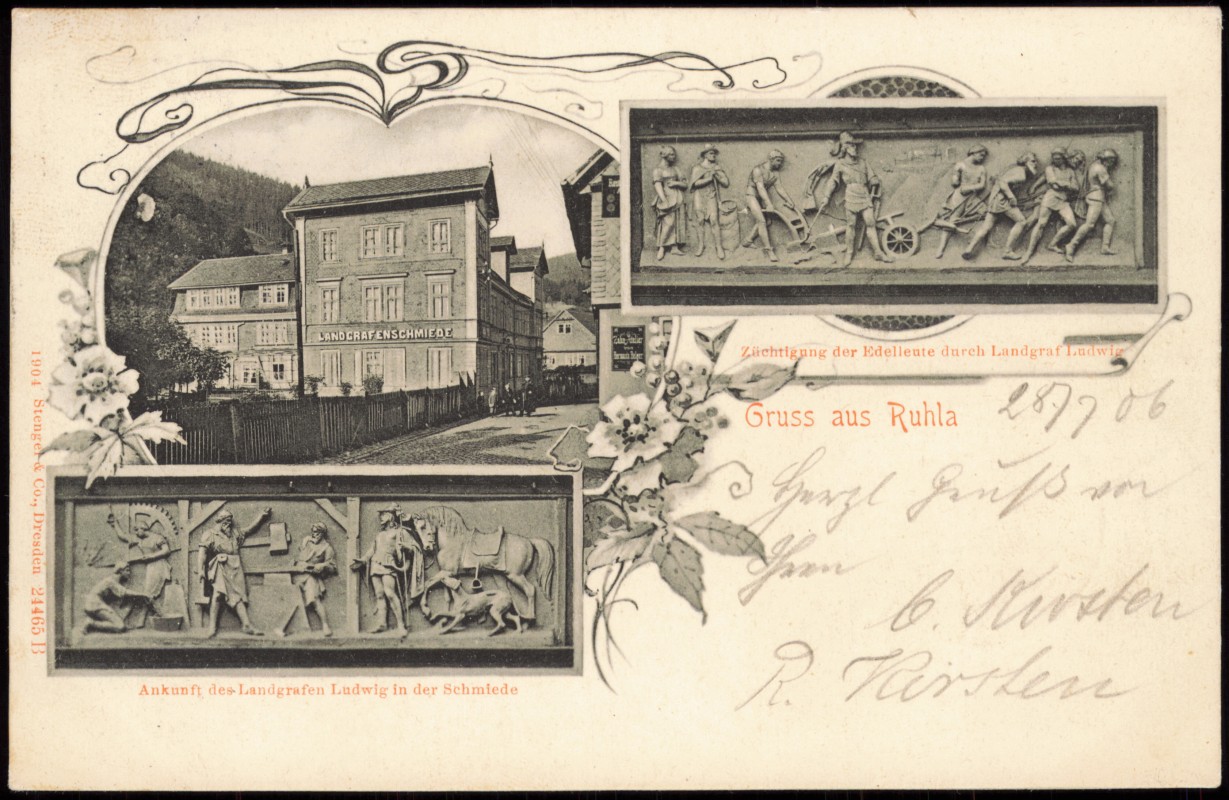 LANDGRAFENSCHMIEDE
Züchtigung der Edelleute durch Landgraf Ludwig
Gruss aus Ruhla
28/7 06
Herzl Gruß von
Ihren
C. Kirsten
R. Kirsten
Ankunft des Landgrafen Ludwig in der Schmiede
1904 Stengel & Co., Dresden 24465 B